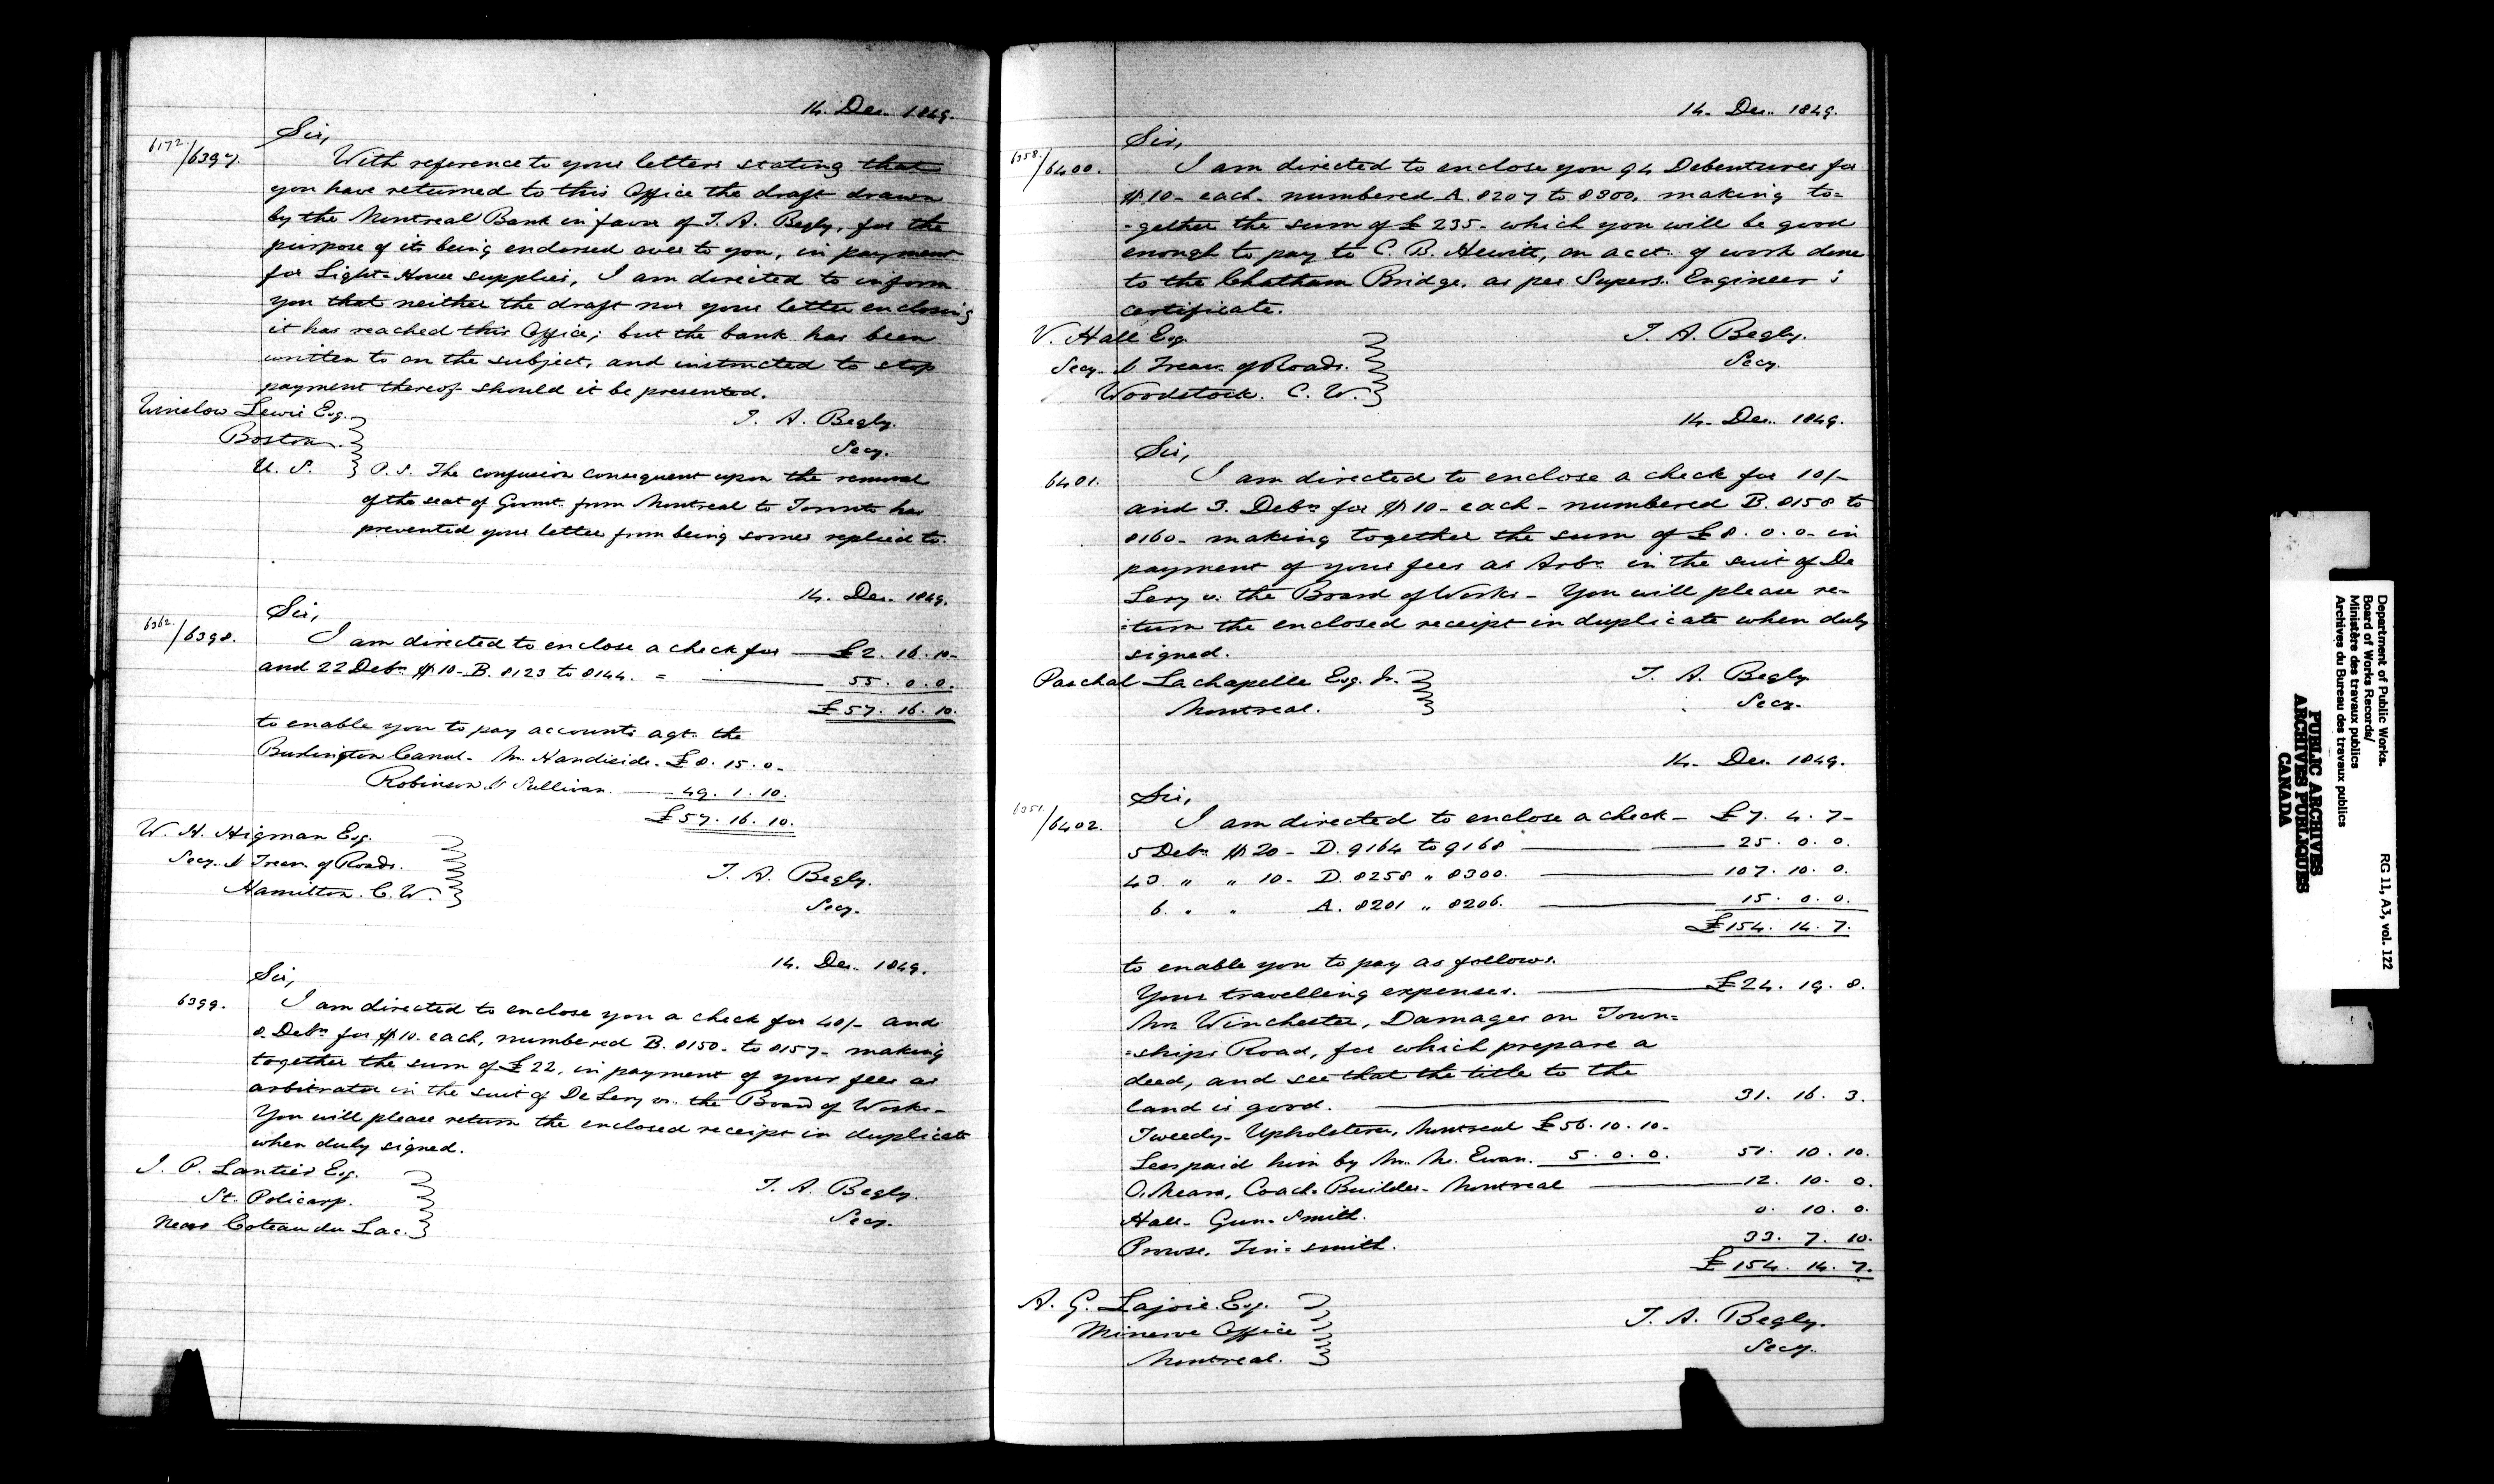 14. Dec. 1849.
Sir,
6172/6397.
With reference to your letters stating that
you have returned to this Office the draft drawn
by the Montreal Bank in favor of T. A. Begly, for the
purpose of its being endorsed over to you, in payment
for Light-House supplies, I am directed to inform
you that neither the draft nor your letter enclosing
it has reached this Office; but the bank has been
written to on the subject, and instructed to stop
payment thereof should it be presented.
Winslow Lewis Esq.
Boston.
U. S.
T. A. Begly.
Secy.
P.S. The confusion consequent upon the removal
of the seat of Govmt. from Montreal to Toronto has
prevented your letter from being sooner replied to.
14. Dec. 1849.
Sir,
6362/6398.
I am directed to enclose a check for — £2. 16. 10-
and 22 Debrs. $10- B. 8123 to 8144. = — 55. 0. 0.
£57. 16. 10.
to enable you to pay accounts agt. the
Burlington Canal - Mr. Handiside - £8. 15. 0-
Robinson & Sullivan — 49. 1. 10.
£57. 16. 10.
W. H. Higman Esq.
Secy. & Treas. of Roads.
Hamilton. C. W.
T. A. Begly.
Secy.
14. Dec. 1849.
Sir,
6399.
I am directed to enclose you a check for 40/- and
8. Debrs. for $10. each, numbered B. 8150. to 8157- making
together the sum of £22, in payment of your fees as
arbitrator in the suit of De Lery vs. the Board of Works-
You will please return the enclosed receipt in duplicate
when duly signed.
J. P. Lantier Esq.
St. Policarp.
Near Coteau du Lac.
T. A. Begly.
Secy.
14. Dec. 1849.
Sir,
6358/6400.
I am directed to enclose you 94 Debentures for
$10- each- numbered A. 8207 to 8300. making to=
-gether the sum of £235- which you will be good
enough to pay to C. B. Hewitt, on acct. of work done
to the Chatham Bridge, as per Supers. Engineer's
certificate.
V. Hall Esq.
Secy. & Treas. of Roads.
Woodstock. C. W.
T. A. Begly.
Secy.
14. Dec. 1849.
Sir,
6401.
I am directed to enclose a check for 10/-
and 3. Debrs. for $10- each- numbered B. 8158 to
8160- making together the sum of £8. 0. 0- in
payment of your fees as Arbr. in the suit of De
Lery v. the Board of Works - You will please re-
=turn the enclosed receipt in duplicate when duly
signed.
Paschal Lachapelle Esq. Jr.
Montreal.
T. A. Begly
Secy.
14. Dec. 1849.
Sir,
6351/6402.
I am directed to enclose a check - £7. 4. 7-
5 Debrs. $20 - D. 9164 to 9168 — 25. 0. 0.
43. " " 10- D. 8258 " 8300. — 107. 10. 0.
6. " " A. 8201 " 8206. — 15. 0. 0.
£154. 14. 7.
to enable you to pay as follows.
Your travelling expenses. — £24. 19. 8.
Mr. Winchester, Damages on Town=
=ships Road, for which prepare a
deed, and see that the title to the
land is good. — 31. 16. 3.
Tweedy- Upholsterer, Montreal £56. 10. 10-
Less paid him by Mr. Mc. Ewan. 5. 0. 0. 51. 10. 10.
O. Meara, Coach-Builder- Montreal — 12. 10. 0.
Hall- Gun-Smith. 0. 10. 0.
Prowse. Tin-smith. 33. 7. 10.
£154. 14. 7.
A. G. Lajoie. Esq.
Minerve Office
Montreal.
T. A. Begly.
Secy.
Department of Public Works.
Board of Works Records/
Ministère des travaux publics
Archives du Bureau des travaux publics
RG 11, A3, vol. 122
PUBLIC ARCHIVES
ARCHIVES PUBLIQUES
CANADA